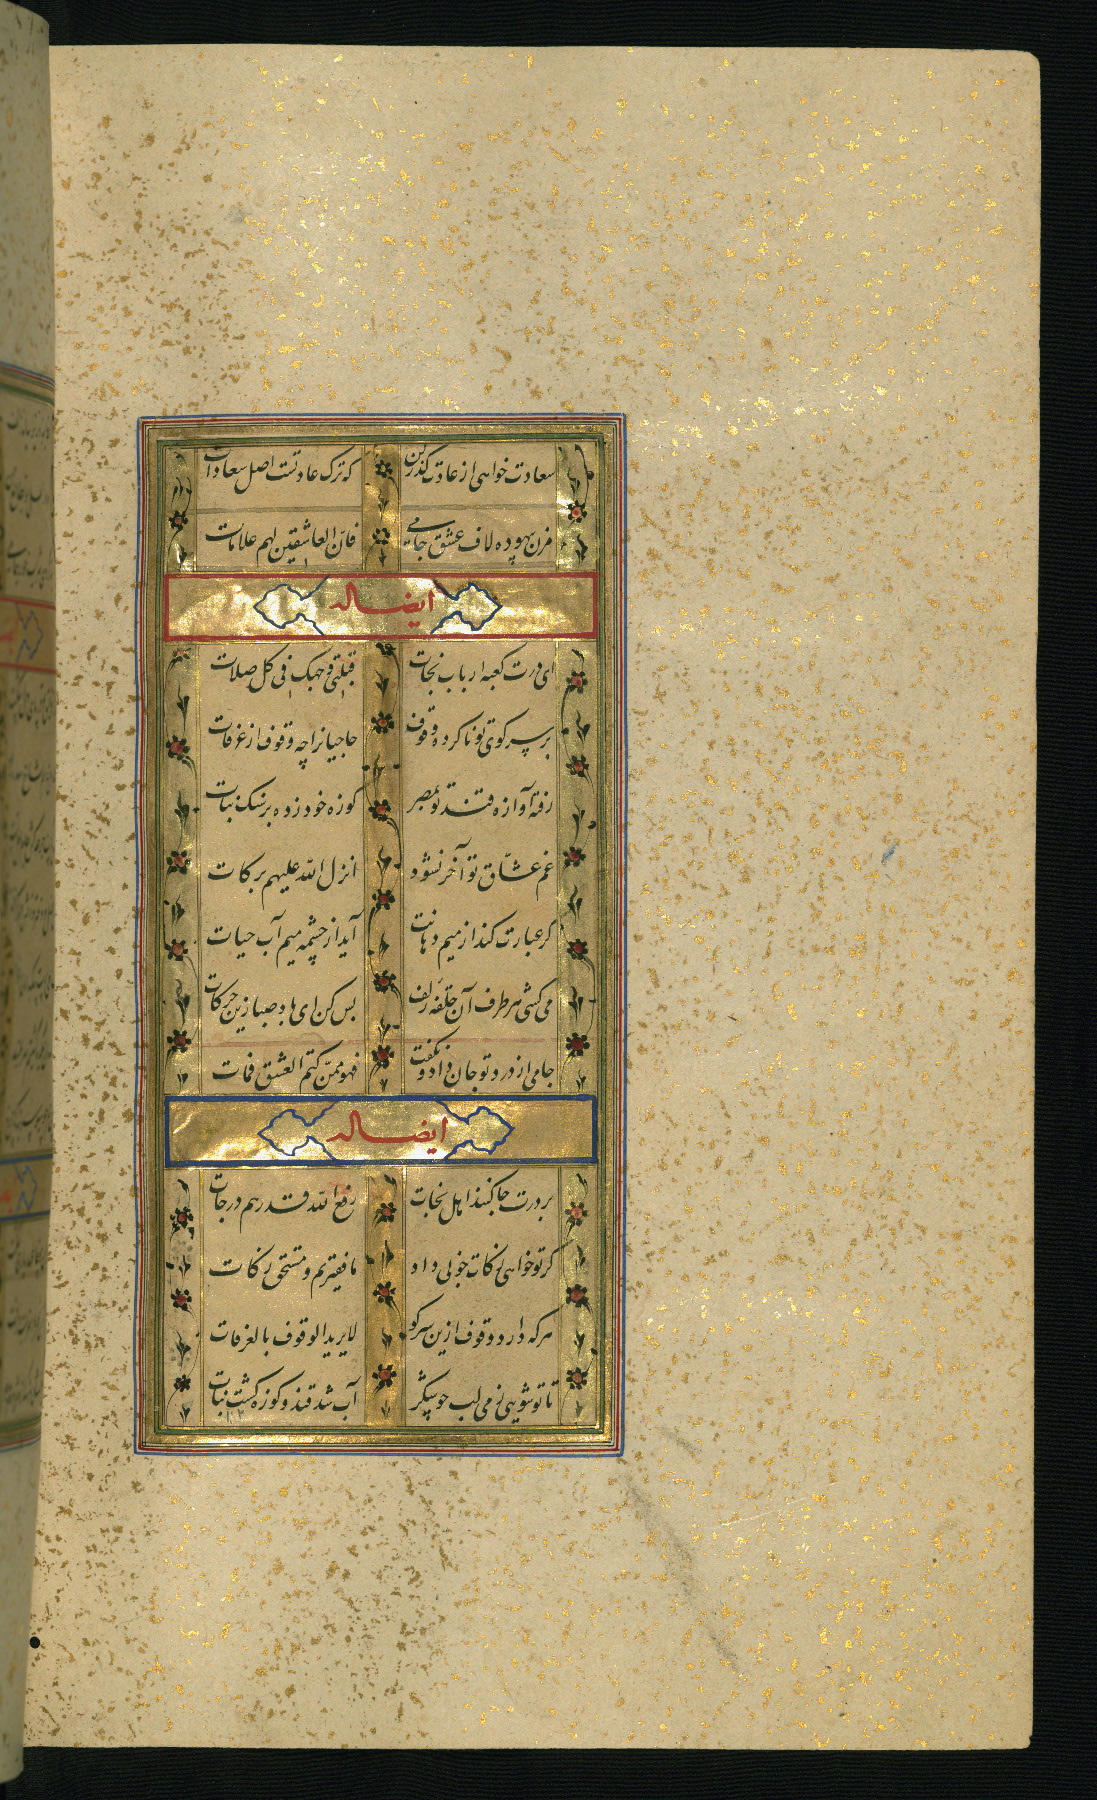 سعادت خواهی از عادت گذر کن که ترک عادتست اصل سعادات
مزن بیهوده لاف عشق جامی فان العاشقین لهم علامات
ایضاله
ای درت کعبه ارباب نجات قبلتی وجهک فی کل صلات
بر سر کوی تو ناکرده وقوف حاجیانرا چه وقوف از عرفات
رفته آوازه قند تو بمصر کوزه خود زده بر سنک نبات
غم عشاق تو آخر نشود انزل الله علیهم برکات
کر عبارت کند از میم دهانت آید از چشمه میم آب حیات
می کشی هر طرف آن حلقه زلف بس کن ای باد صبا زین حرکات
جامی از درد تو جان داد و نکفت فهو ممن کتم العشق فمات
ایضاله
بر درت جا کنند اهل نجات رفع الله قدرهم درجات
کر تو خواهی زکات خوبی داد ما فقیریم و مستحق زکات
هر که دارد وقوف ازین سر کو لا یرید الوقوف بالعرفات
تا تو شویی ز می لب چو شکر آب شد قند و کوزه کشت نبات